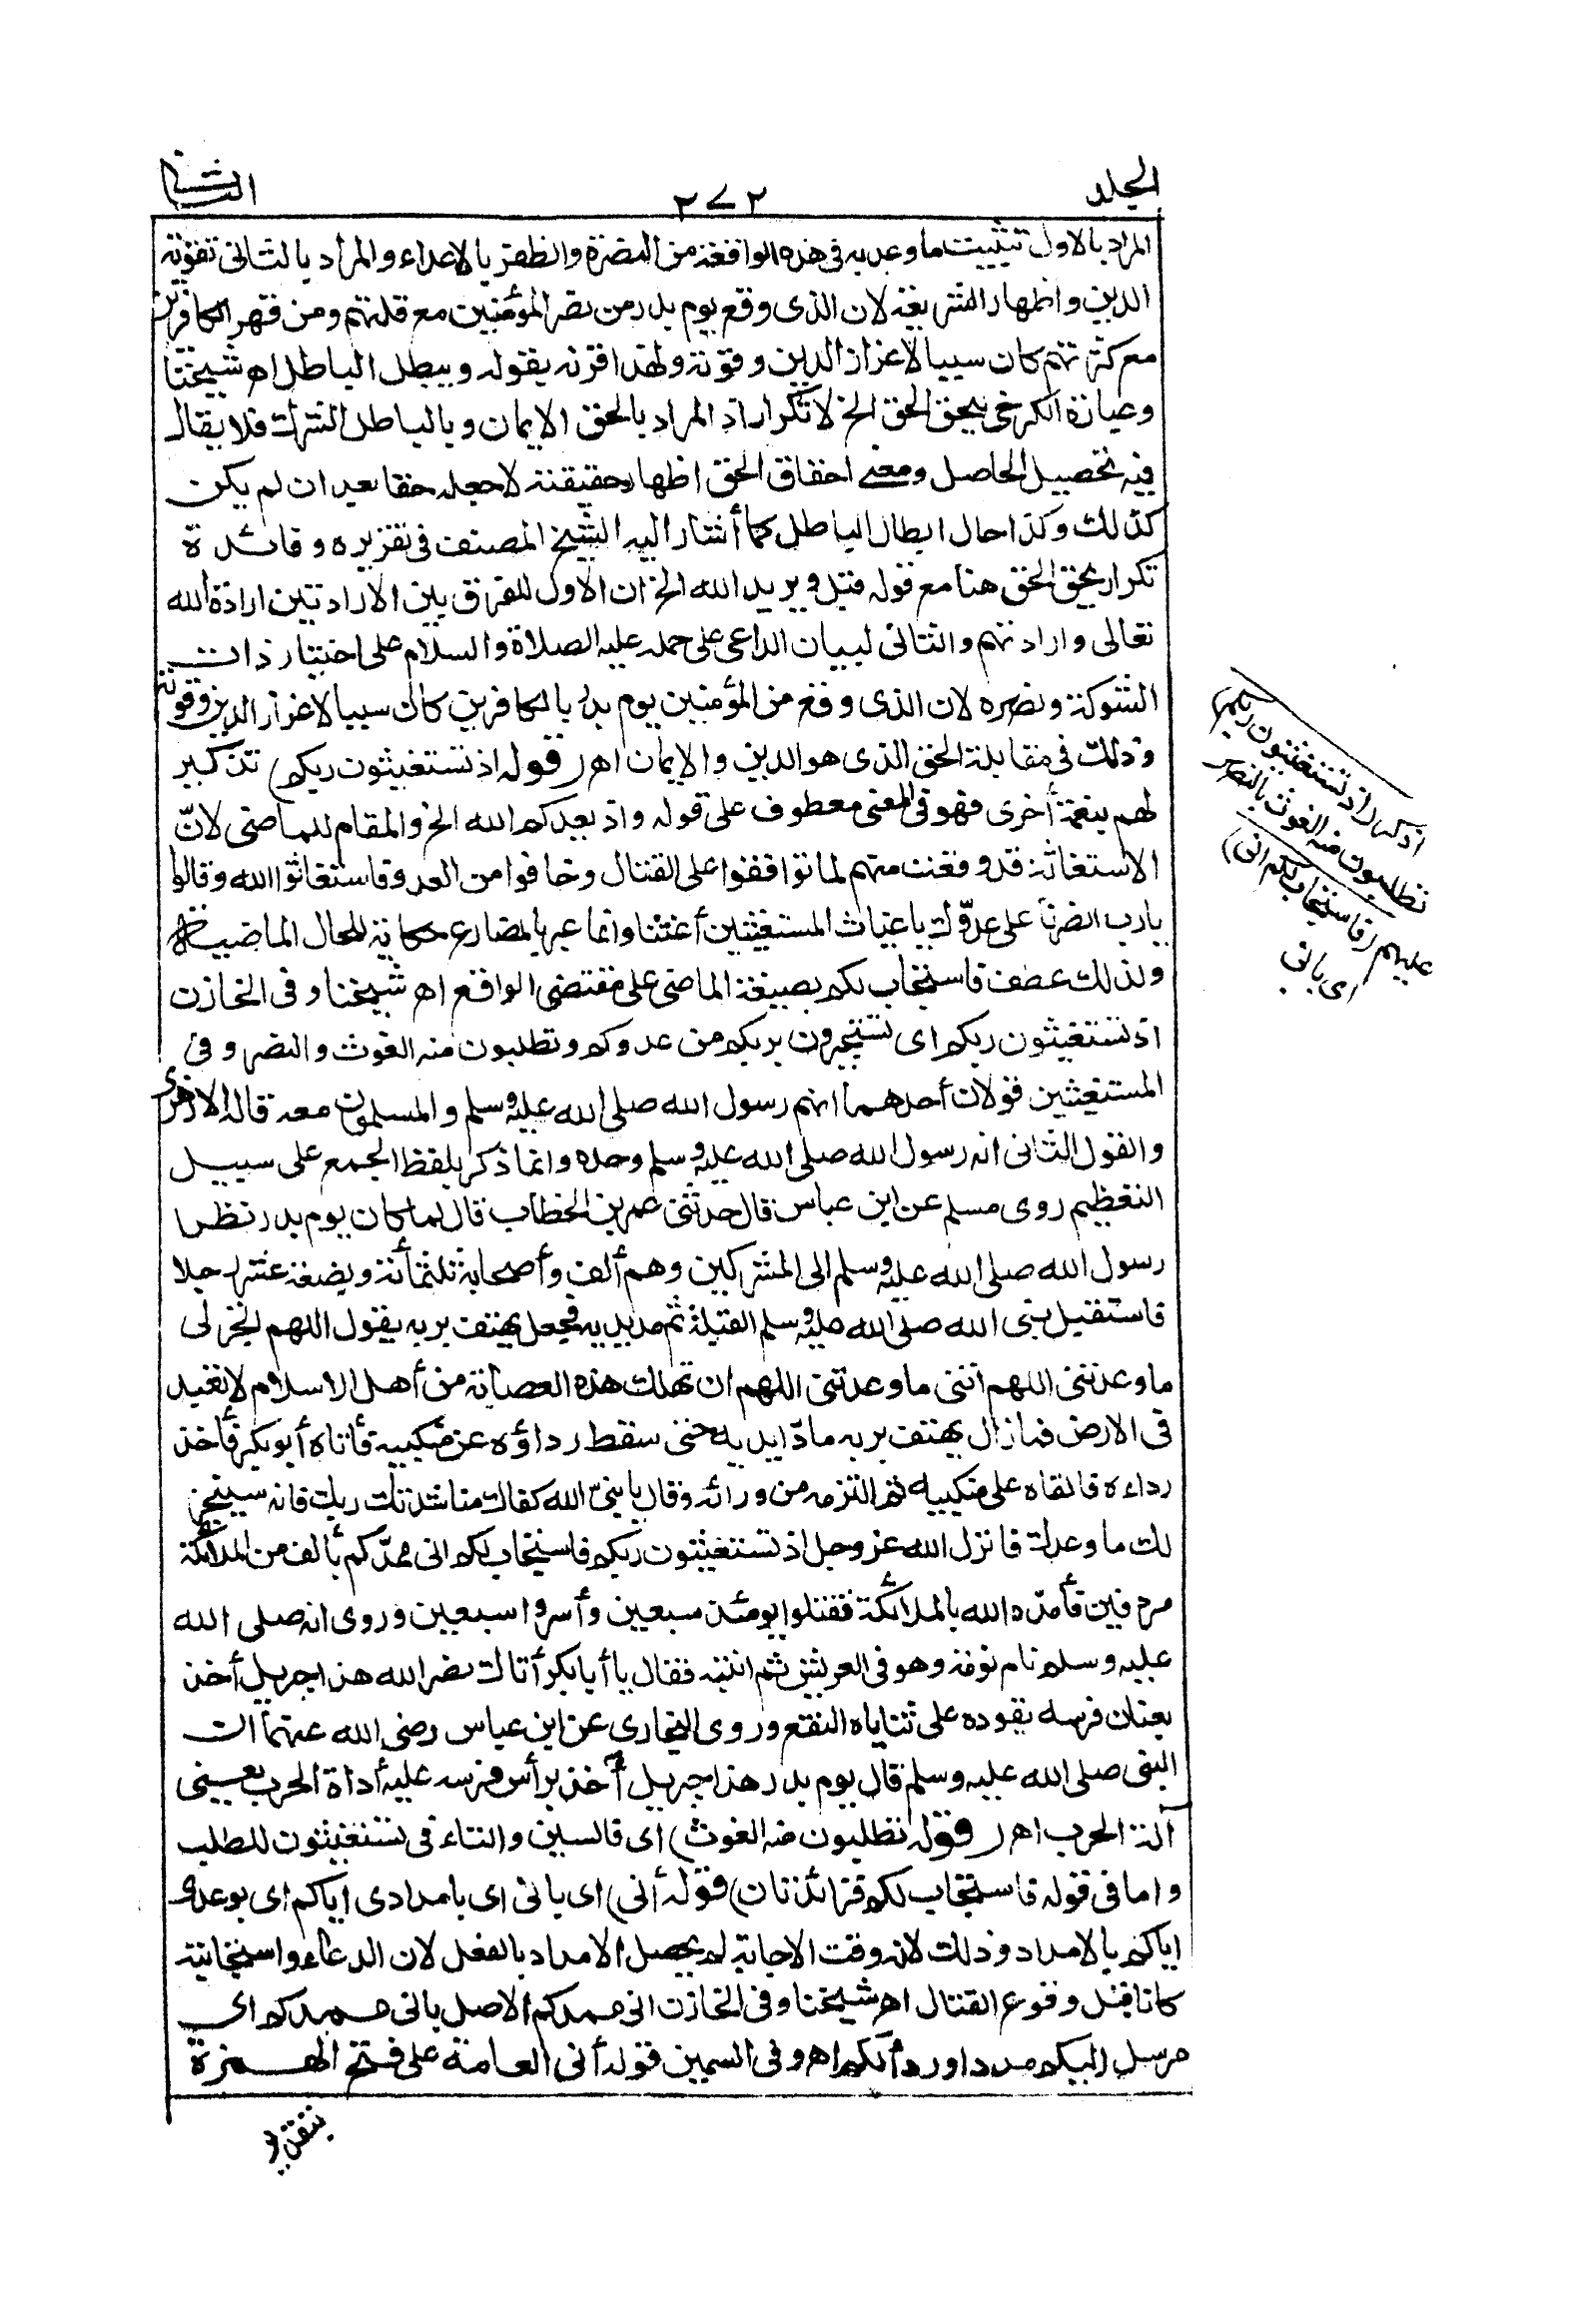 الجلد
٢٧٢
الثانى
المراد بالاول تثبيت ما وعد به فى هذه الواقعة من النصرة والظفر بالاعداء والمراد بالثانى تقوية
الدين واظهار الشريعة لان الذى وقع يوم بدر من نصر المؤمنين مع قلتهم ومن قهر الكافرين
مع كثرتهم كان سببا لاعزاز الدين وقوته ولهذا قرنه بقوله ويبطل الباطل اهـ شيخنا
وعبارة الكرخى ليحق الحق الخ لا تكرار اذ المراد بالحق الايمان وبالباطل الشرك فلا يقال
فيه تحصيل الحاصل ومعنى احقاق الحق اظهار حقيقته لا جعله حقا بعد ان لم يكن
كذلك وكذا حال ابطال الباطل كما أشار اليه الشيخ المصنف فى تقريره وفائدة
تكرار يحق الحق هنا مع قوله قبل ويريد الله الخ ان الاول للفرق بين الارادتين ارادة الله
تعالى وارادتهم والثانى لبيان الداعى على حمله عليه الصلاة والسلام على اختيار ذات
الشوكة ونصره لان الذى وقع من المؤمنين يوم بدر بالكافرين كان سببا لاعزاز الدين وقوته
وذلك فى مقابلة الحق الذى هو الدين والايمان اهـ (قوله اذ تستغيثون ربكم) تذكير
لهم بنعمة أخرى فهو فى المعنى معطوف على قوله واذ يعدكم الله الخ والمقام للماضى لانّ
الاستغاثة قد وقعت منهم لما تواقفوا على القتال وخافوا من العدو فاستغاثوا الله وقالوا
يارب انصرنا على عدوّك يا غياث المستغيثين أغثنا وانما عبر بالمضارع حكاية للحال الماضية
ولذلك عطف فاستجاب لكم بصيغة الماضى على مقتضى الواقع اهـ شيخنا وفى الخازن
اذ تستغيثون ربكم اى تستجيرون بربكم من عدوكم وتطلبون منه الغوث والنصر وفى
المستغيثين قولان أحدهما انهم رسول الله صلى الله عليه وسلم والمسلمون معه قاله الازهرى
والقول الثانى انه رسول الله صلى الله عليه وسلم وحده وانما ذكر بلفظ الجمع على سبيل
التعظيم روى مسلم عن ابن عباس قال حدثنى عمر بن الخطاب قال لما كان يوم بدر نظر
رسول الله صلى الله عليه وسلم الى المشركين وهم ألف وأصحابه ثلثمائة وبضعة عشر رجلا
فاستقبل نبى الله صلى الله عليه وسلم القبلة ثم مد يديه فجعل يهتف بربه يقول اللهم انجز لى
ما وعدتنى اللهم اتنى ما وعدتنى اللهم ان تهلك هذه العصابة من أهل الاسلام لا تعبد
فى الارض فما زال يهتف بربه مادّا يديه حتى سقط رداؤه عن منكبيه فأتاه أبو بكر فأخذ
رداءه فالقاه على منكبيه ثم التزمه من ورائه وقال يا نبىّ الله كفاك مناشدتك ربك فانه سينجز
لك ما وعدك فانزل الله عز وجل اذ تستغيثون ربكم فاستجاب لكم انى ممدّكم بألف من الملائكة
مردفين فأمدّه الله بالملائكة فقتلوا يومئذ سبعين وأسروا سبعين وروى انه صلى الله
عليه وسلم نام نومة وهو فى العريش ثم انتبه فقال يا أبا بكر أتاك نصر الله هذا جبريل أخذ
بعنان فرسه يقوده على ثناياه النقع وروى البخارى عن ابن عباس رضى الله عنهما ان
النبى صلى الله عليه وسلم قال يوم بدر هذا جبريل أخذ برأس فرسه عليه أداة الحرب يعنى
آلة الحرب اهـ (قوله تطلبون منه الغوث) اى قالسين والتاء فى تستغيثون للطلب
واما فى قوله فاستجاب لكم فزائدتان (قوله أنى) اى بانى اى بامدادى اياكم اى بوعدى
اياكم بالامداد وذلك لانه وقت الاجابة لم يحصل الامداد بالفعل لان الدعاء واستجابته
كانا قبل وقوع القتال اهـ شيخنا وفى الخازن انى ممدكم الاصل بانى ممدكم اى
مرسل اليكم مددا وردأ لكم اهـ وفى السمين قوله أنى العامة على فتح الهمزة
اذكر (اذ تستغيثون ربكم)
تطلبون منه الغوث بالنصر
عليهم (فاستجاب لكم انى)
اى بانى